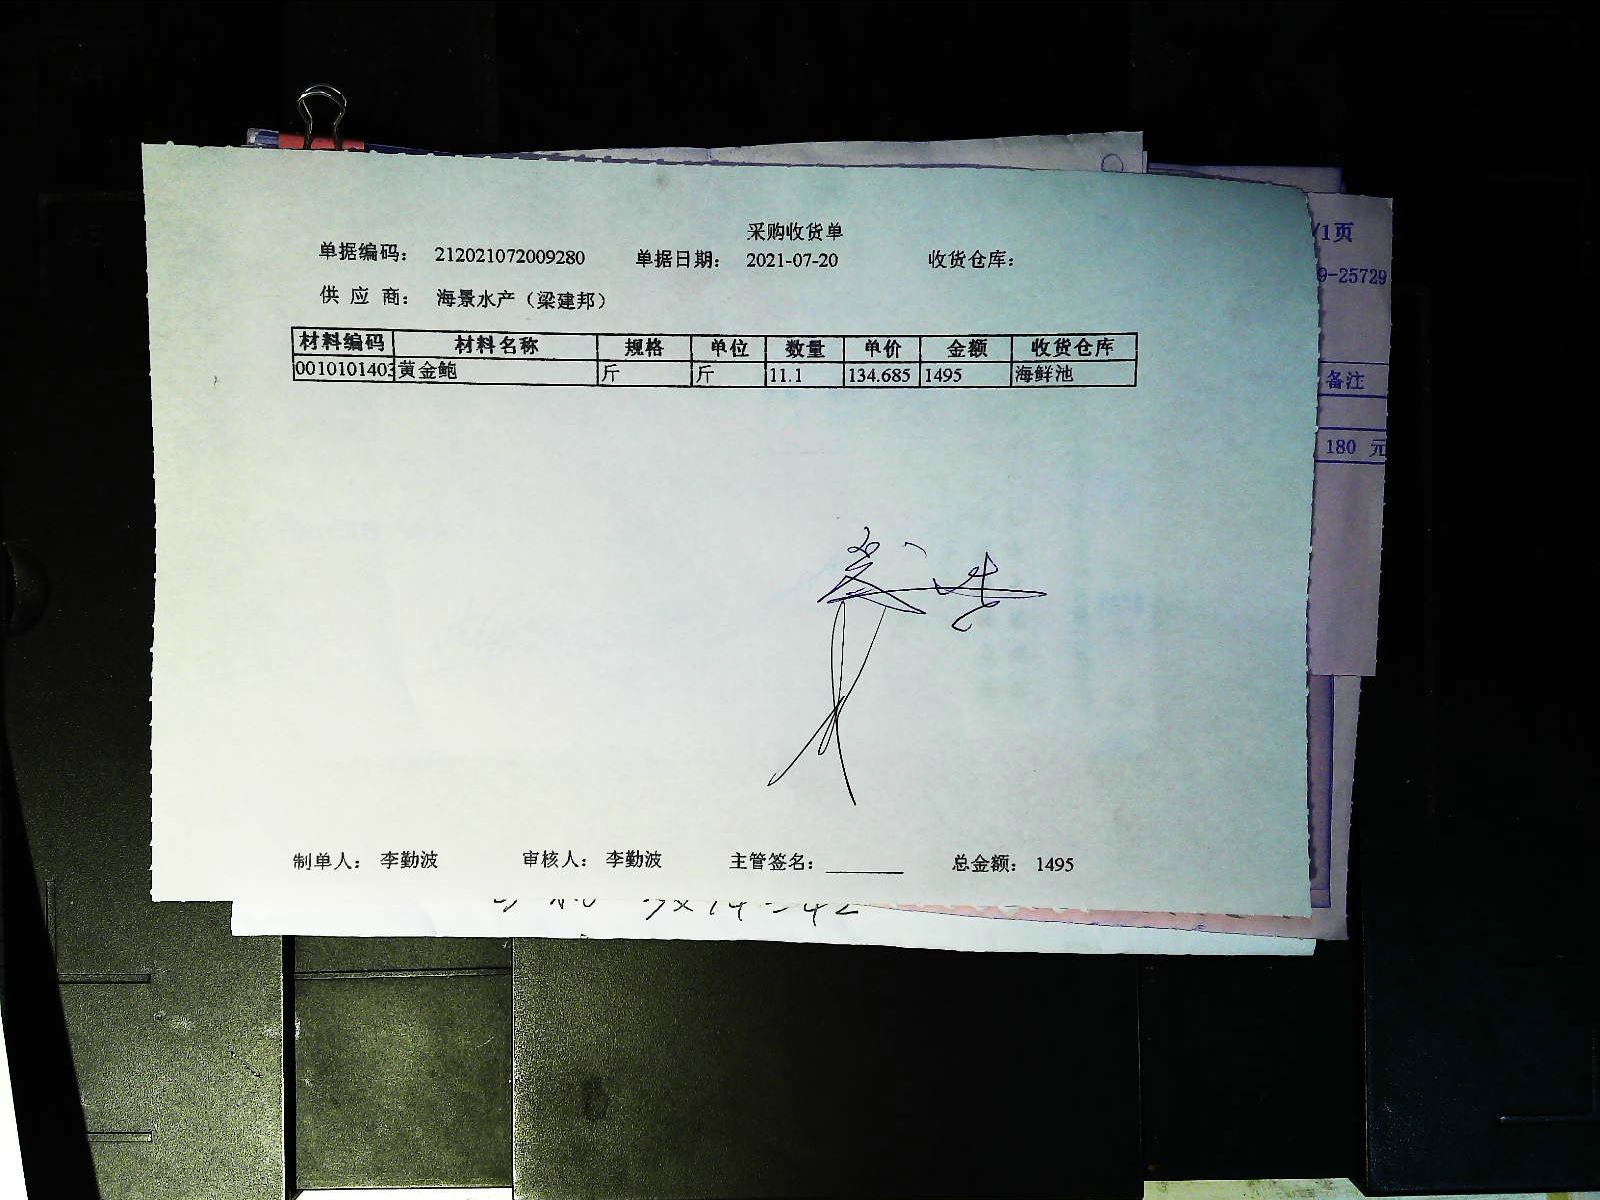 采购收货单
单据编码： 212021072009280 单据日期： 2021-07-20 收货仓库：
供 应 商： 海景水产（梁建邦）
材料编码 材料名称 规格 单位 数量 单价 金额 收货仓库
0010101403 黄金鲍 斤 斤 11.1 134.685 1495 海鲜池
制单人： 李勤波 审核人： 李勤波 主管签名： 总金额： 1495
/1页
9-25729
备注
180 元